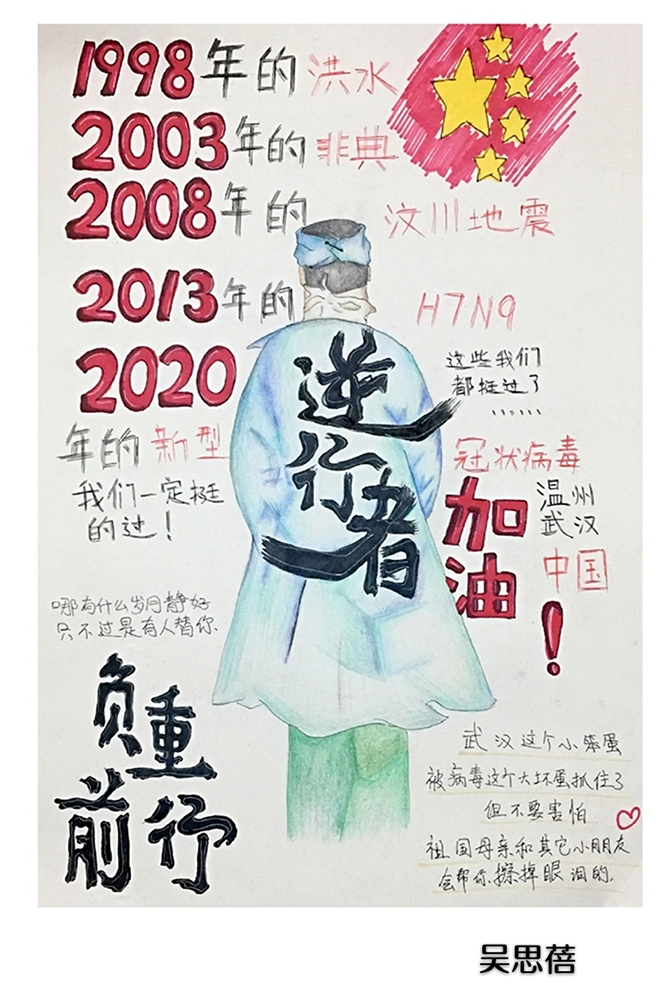 1998年的 洪水
2003年的 非典
2008年的 汶川地震
2013年的 H7N9
这些我们
都挺过了
......
2020
年的 新型 冠状病毒
我们一定挺
的过！
逆
行
者
加
油
！
温州
武汉
中国
哪有什么岁月静好
只不过是有人替你
负重
前行
武汉这个小笨蛋
被病毒这个大坏蛋抓住了
但不要害怕
祖国母亲和其它小朋友
会帮你擦掉眼泪的.
吴思蓓